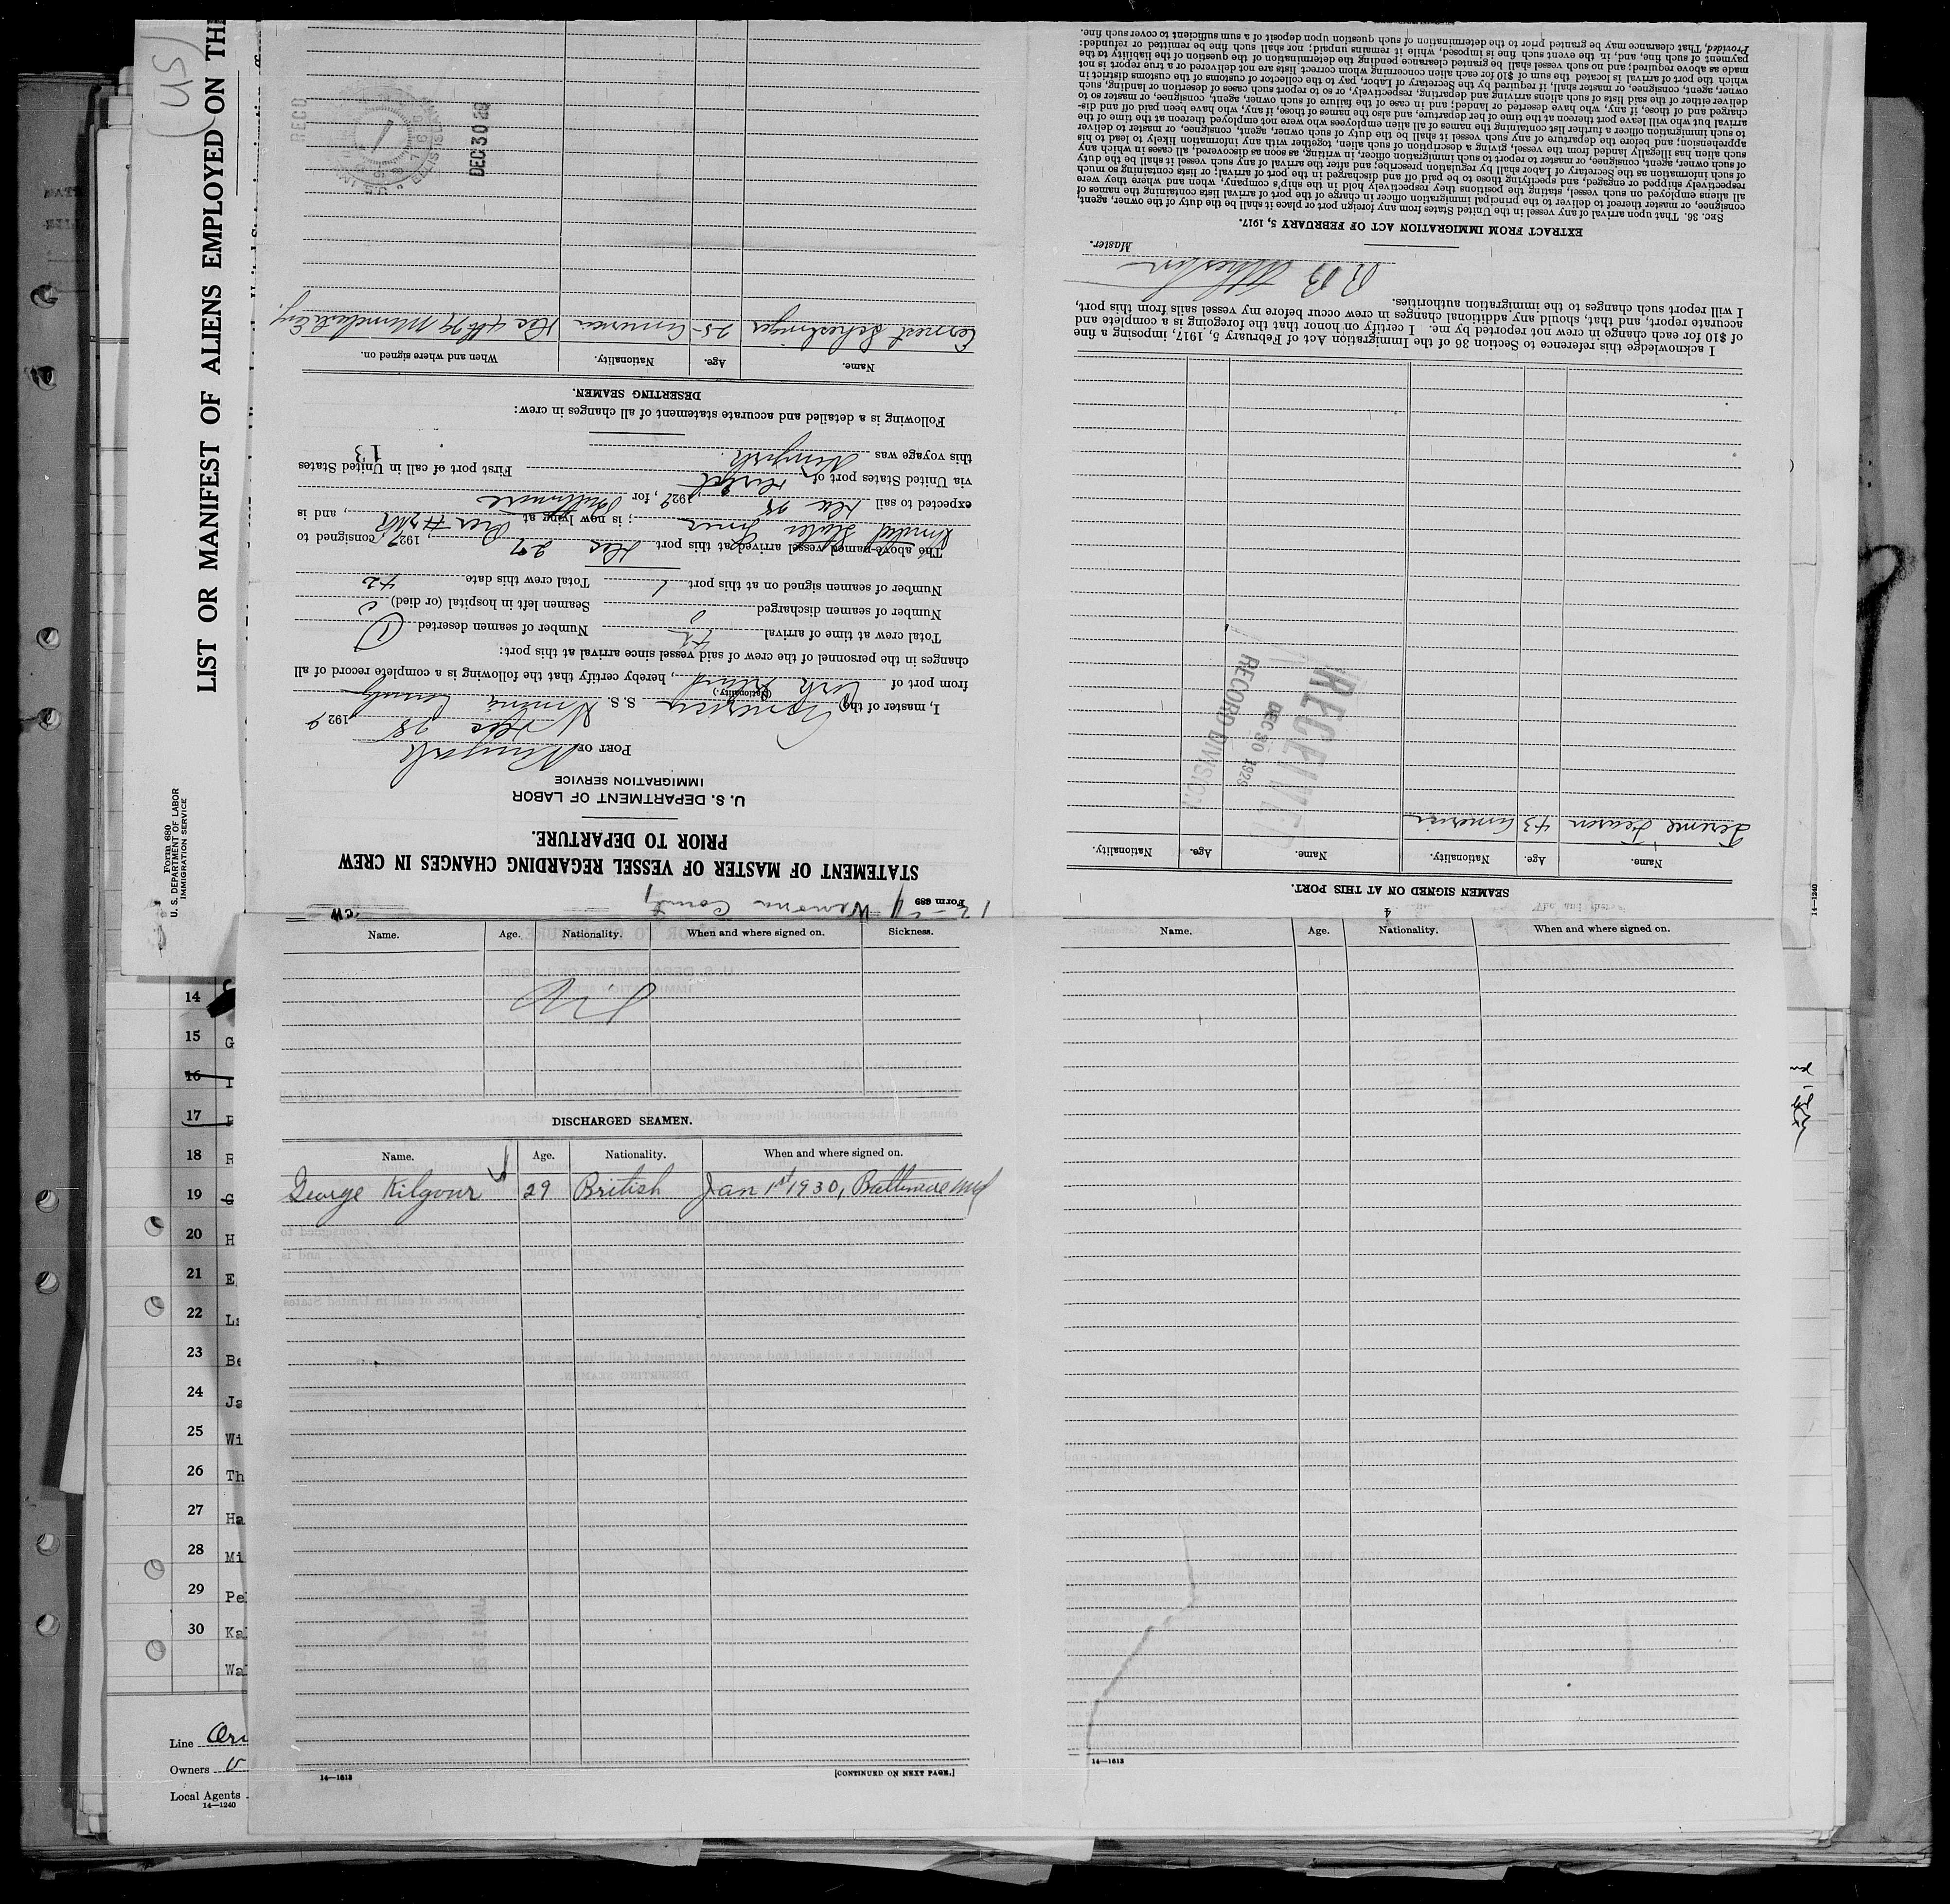 LIST OR MANIFEST OF ALIENS EMPLOYED ON THE
Form 680
U. S. DEPARTMENT OF LABOR
IMMIGRATION SERVICE
Form 689
STATEMENT OF MASTER OF VESSEL REGARDING CHANGES IN CREW
PRIOR TO DEPARTURE.
U. S. DEPARTMENT OF LABOR
IMMIGRATION SERVICE
PORT OF New York
Dec 28 1929
I, master of the American S. S. Winona County
(Nationality.)
from port of Cork Ireland, hereby certify that the following is a complete record of all
changes in the personnel of the crew of said vessel since arrival at this port:
Total crew at time of arrival 42 Number of seamen deserted 1
Number of seamen discharged 0 Seamen left in hospital (or died) 0
Number of seamen signed on at this port 1 Total crew this date 42
The above-named vessel arrived at this port Dec 27 1929, consigned to
United States Lines; is now lying at Pier, and is
expected to sail Dec 28 1929, for Baltimore
via United States port of direct First port of call in United States
this voyage was New York.
13
Following is a detailed and accurate statement of all changes in crew:
DESERTING SEAMEN.
Name. Age. Nationality. When and where signed on.
Ernest 25 American Dec 4th 29 Manchester Eng.
REC'D
DEC 30 29
SEAMEN SIGNED ON AT THIS PORT.
Name. Age. Nationality. Name. Age. Nationality.
Jerome 43 American
RECEIVED
DEC 30 1929
RECORD DIVISION
I acknowledge this reference to Section 36 of the Immigration Act of February 5, 1917, imposing a fine
of $10 for each change in crew not reported by me. I certify on honor that the foregoing is a complete and
accurate report, and that, should any additional changes in crew occur before my vessel sails from this port,
I will report such changes to the immigration authorities.
Master.
EXTRACT FROM IMMIGRATION ACT OF FEBRUARY 5, 1917.
SEC. 36. That upon arrival of any vessel in the United States from any foreign port or place it shall be the duty of the owner, agent,
consignee, or master thereof to deliver to the principal immigration officer in charge of the port of arrival lists containing the names of
all aliens employed on such vessel, stating the positions they respectively hold in the ship's company, when and where they were
respectively shipped or engaged, and specifying those to be paid off and discharged in the port of arrival; or lists containing so much
of such information as the Secretary of Labor shall by regulation prescribe; and after the arrival of any such vessel it shall be the duty
of such owner, agent, consignee, or master to report to such immigration officer, in writing, as soon as discovered, all cases in which any
such alien has illegally landed from the vessel, giving a description of such alien, together with any information likely to lead to his
apprehension; and before the departure of any such vessel it shall be the duty of such owner, agent, consignee, or master to deliver
to such immigration officer a further list containing the names of all alien employees who were not employed thereon at the time of the
arrival but who will leave port thereon at the time of her departure, and also the names of those, if any, who have been paid off and dis-
charged and of those, if any, who have deserted or landed; and in case of the failure of such owner, agent, consignee, or master so to
deliver either of the said lists of such aliens arriving and departing, respectively, or so to report such cases of desertion or landing, such
owner, agent, consignee, or master shall, if required by the Secretary of Labor, pay to the collector of customs of the customs district in
which the port of arrival is located the sum of $10 for each alien concerning whom correct lists are not delivered or a true report is not
made as above required; and no such vessel shall be granted clearance pending the determination of the question of the liability to the
payment of such fine, and, in the event such fine is imposed, while it remains unpaid; nor shall such fine be remitted or refunded:
Provided, That clearance may be granted prior to the determination of such question upon deposit of a sum sufficient to cover such fine.
14—1240
Name. Age. Nationality. When and where signed on. Sickness.
DISCHARGED SEAMEN.
Name. Age. Nationality. When and where signed on.
George Kilgour 29 British Jan 1st 1930, Baltimore Md
14—1613
[CONTINUED ON NEXT PAGE.]
4
Name. Age. Nationality. When and where signed on.
14—1613
14
15 G
16
17
18 R
19 G
20 H
21 E
22
23 Be
24 Ja
25 Wi
26 Th
27 Ha
28 Mi
29 Pe
30 Ka
Wa
Line
Owners
Local Agents
14—1240